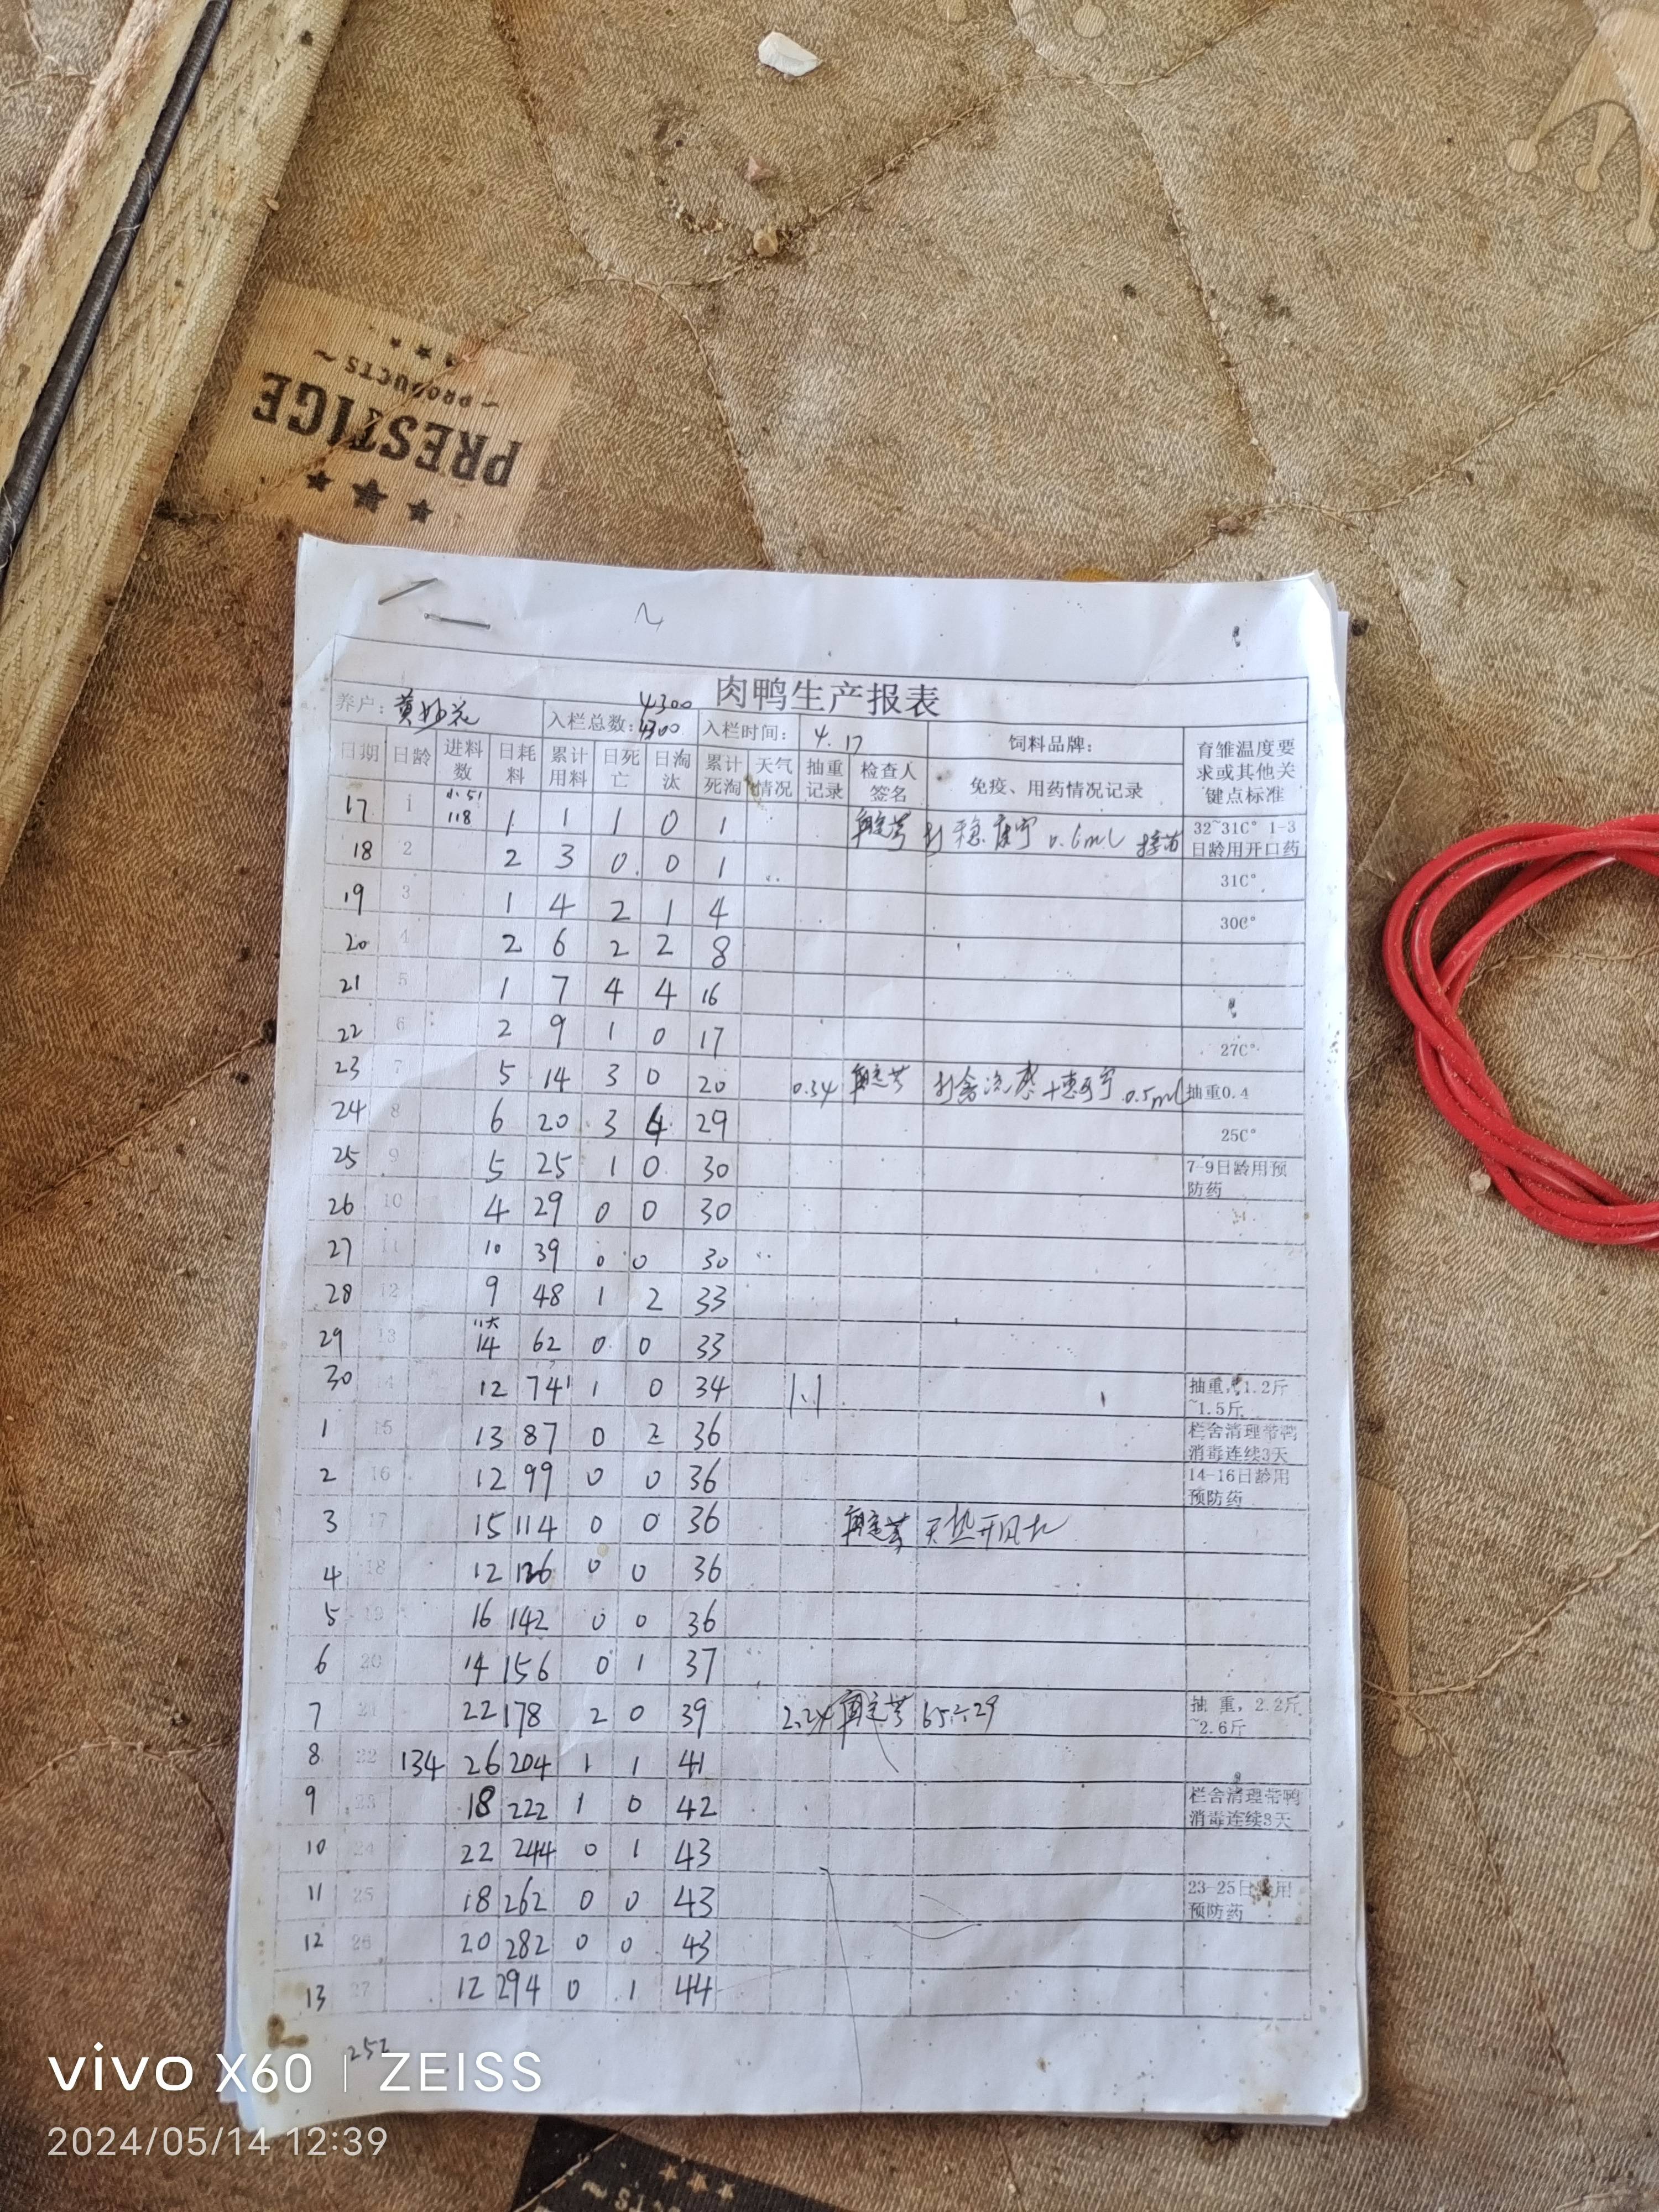 PRESTICE
~PRODUCTS~
肉鸭生产报表
养户: 黄 花 入栏总数: 4300 4300 入栏时间: 4.17 饲料品牌: 育雏温度要求或其他关键点标准
日期 日龄 进料数 日耗料 累计用料 日死亡 日淘汰 累计死淘 天气情况 抽重记录 检查人签名 免疫、用药情况记录
17 1 小51 118 1 1 1 0 1 打 0.6ml 接苗 32~31C° 1-3日龄用开口药
18 2 2 3 0 0 1 31C°
19 3 1 4 2 1 4 30C°
20 4 2 6 2 2 8
21 5 1 7 4 4 16
22 6 2 9 1 0 17 27C°
23 7 5 14 3 0 20 0.34 打禽流感+ 0.5ml 抽重0.4
24 8 6 20 3 4 29 25C°
25 9 5 25 1 0 30 7-9日龄用预防药
26 10 4 29 0 0 30
27 11 10 39 0 0 30
28 12 9 48 1 2 33
29 13 11大 14 62 0 0 33
30 14 12 74 1 0 34 1.1 抽重,1.2斤~1.5斤
1 15 13 87 0 2 36 栏舍清理带鸭消毒连续3天
2 16 12 99 0 0 36 14-16日龄用预防药
3 17 15 114 0 0 36 天热开风机
4 18 12 126 0 0 36
5 19 16 142 0 0 36
6 20 14 156 0 1 37
7 21 22 178 2 0 39 2.24 65÷29 抽 重, 2.2斤~2.6斤
8 22 134 26 204 1 1 41
9 23 18 222 1 0 42 栏舍清理带鸭消毒连续3天
10 24 22 244 0 1 43
11 25 18 262 0 0 43 23-25日龄用预防药
12 26 20 282 0 0 43
13 27 12 294 0 1 44
252
vivo X60 | ZEISS
2024/05/14 12:39